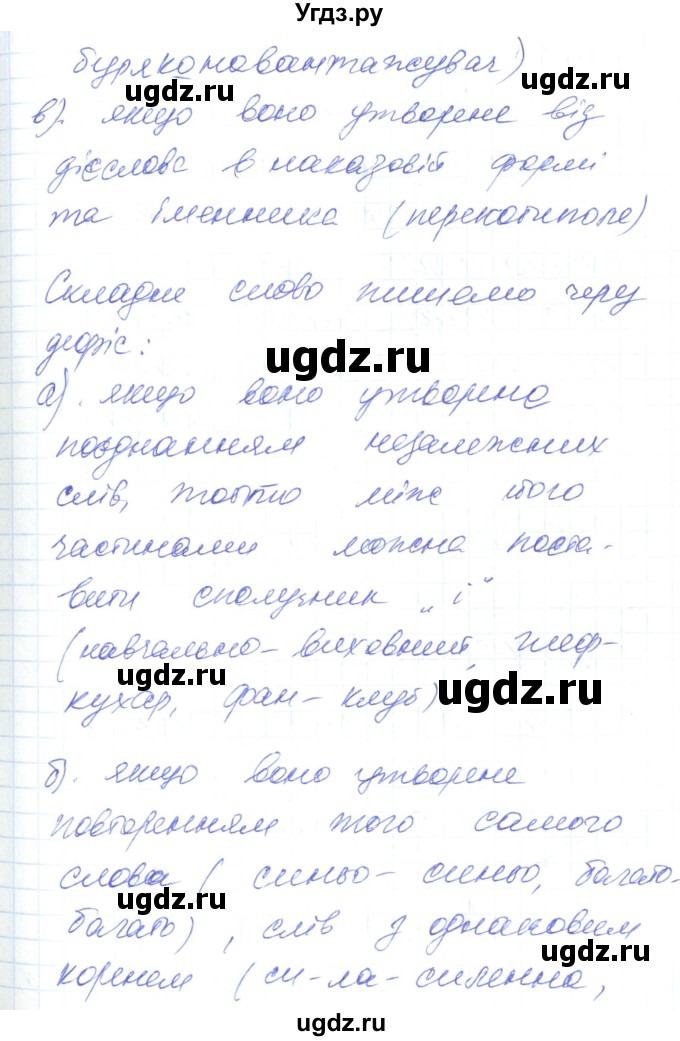 Угдз.ру
буряконавантажувач)
ugdz.ru
в). якщо воно утворене від
дієслова в наказовій формі
ugdz.ru
та іменника (перекотиполе)
Складне слово пишемо через
дефіс:
ugdz.ru
а). якщо воно утворено
поєднанням незалежних
слів, тобто між його
частинами можна поста-
вити сполучник „і"
(навчально-виховний, шеф-
ugdz.ru
кухар, фан-клуб)
ugdz.ru
б). якщо воно утворене
повторенням того самого
слова (синьо-синьо, багато-
багато), слів з однаковим
ugdz.ru
коренем (си-ла-силенна,
ugdz.ru